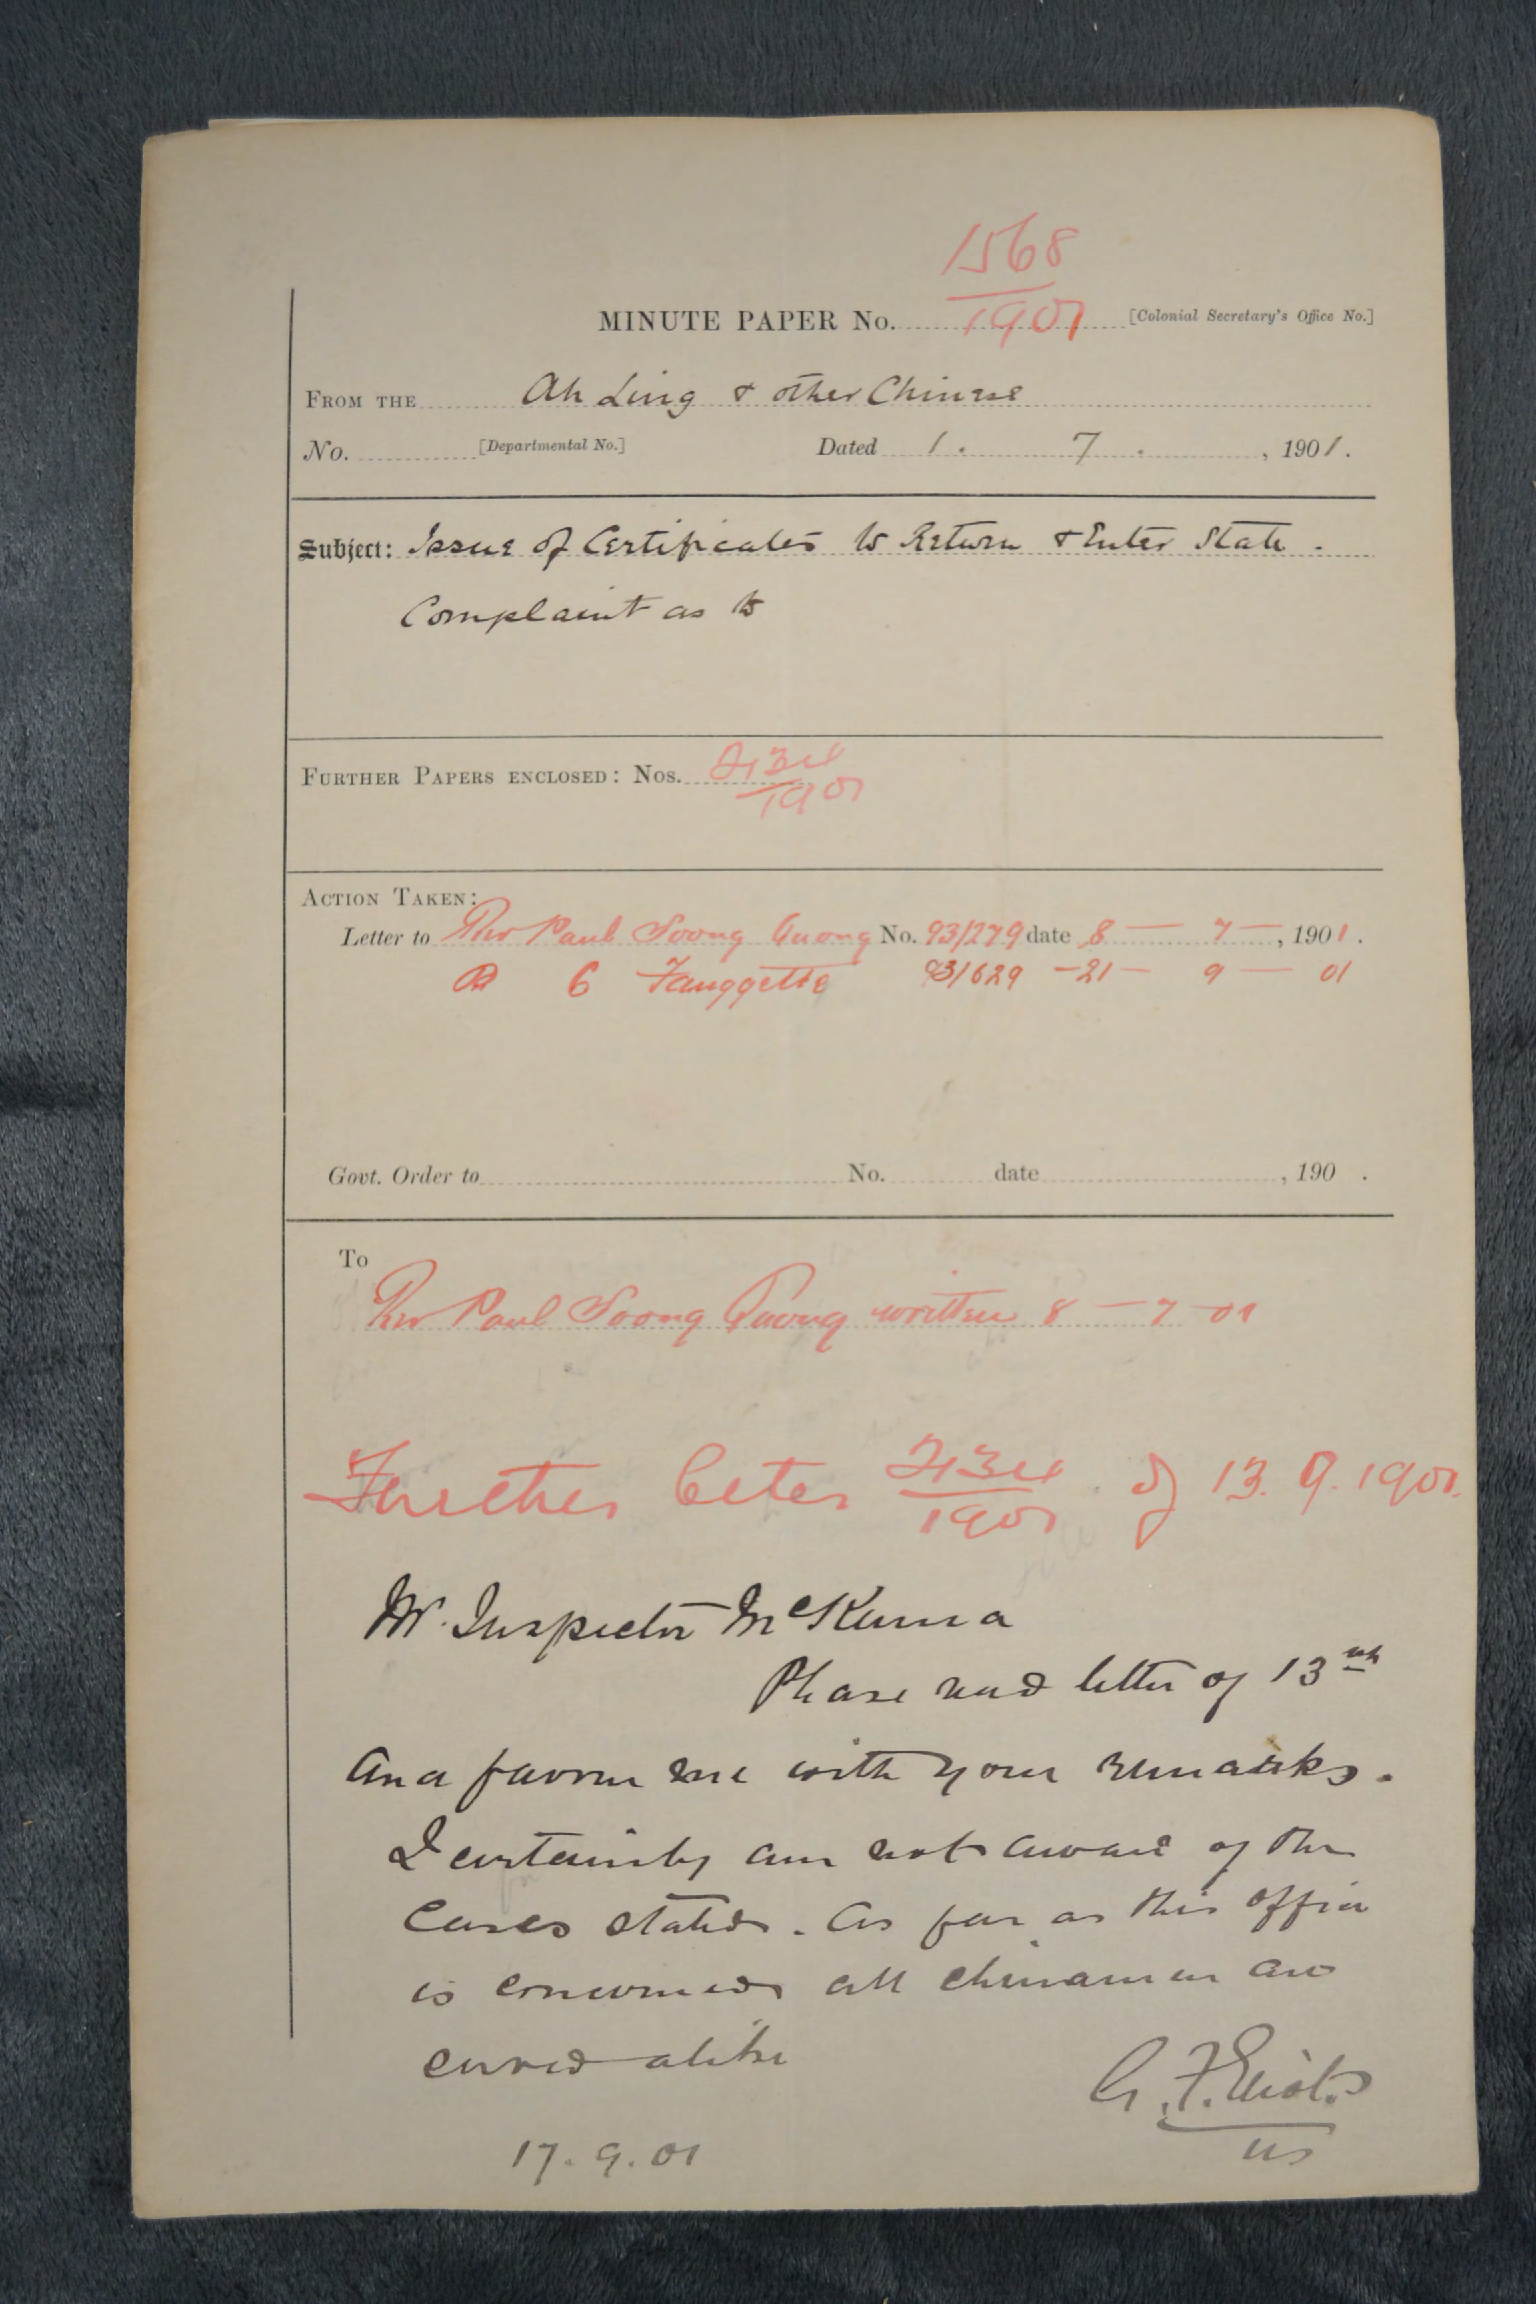 1568
1901
MINUTE PAPER No. [Colonial Secretary's Office No.]
FROM THE Ah Ling & other Chinese
No. [Departmental No.] Dated 1. 7. , 1901.
Subject: Issue of Certificates to Return & Enter State.
Complaint as to
FURTHER PAPERS ENCLOSED: Nos. 2134
1901
ACTION TAKEN:
Letter to Rev Paul Soong Quong No. 93/279 date 8 — 7 —, 1901.
6 93/629 - 21 - 9 - 01
Govt. Order to No. date , 190 .
To
Rev Paul Soong Quong written 8 — 7 - 01
Further letter 2134
1901 of 13. 9. 1901.
Mr. Inspector McKenna
Please read letter of 13th
and favour me with your remarks.
I certainly am not aware of the
cases stated. As far as this office
is concerned all chinamen are
alike
G. F. Eliot
17. 9. 01